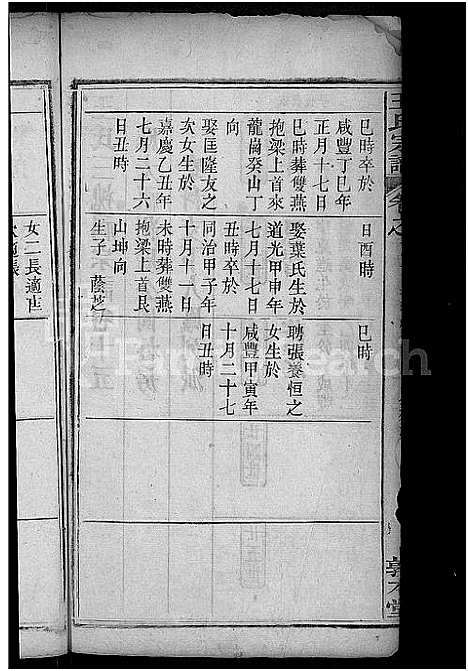 王氏宗譜
巳時卒於
咸豐丁巳年
正月十七日
巳時葬雙燕
抱梁上首來
龍崗癸山丁
向
娶匡隆友之
次女生於
嘉慶乙丑年
七月二十六
日丑時
日酉時
娶葉氏生於
道光甲申年
七月十七日
丑時卒於
同治甲子年
十月十一日
未時葬雙燕
抱梁上首艮
山坤向
生子 蔭芝
巳時
聘張養恒之
女生於
咸豐甲寅年
十月二十七
日丑時
女二長適